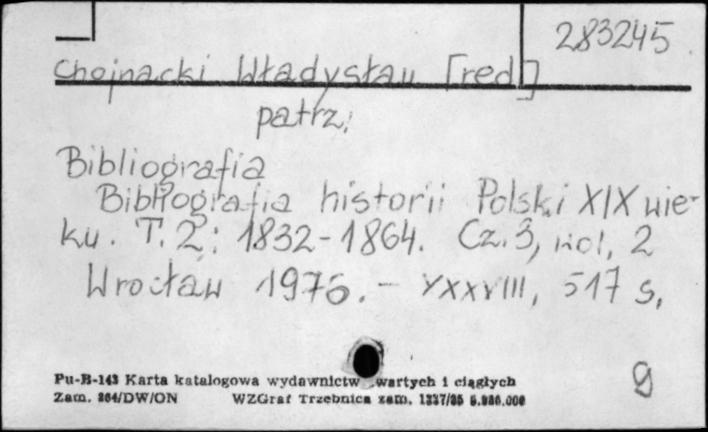 283245
Chojnacki Władysław [red]
patrz:
Bibliografia
Bibliografia historii Polski XIX wie-
ku. T. 2: 1832-1864. Cz. 3, wol. 2
Wrocław 1976. - XXXVIII, 517 s.
Pu-B-143 Karta katalogowa wydawnictw zwartych i ciągłych
Zam. 864/DW/ON WZGraf Trzebnica zam. 1337/85